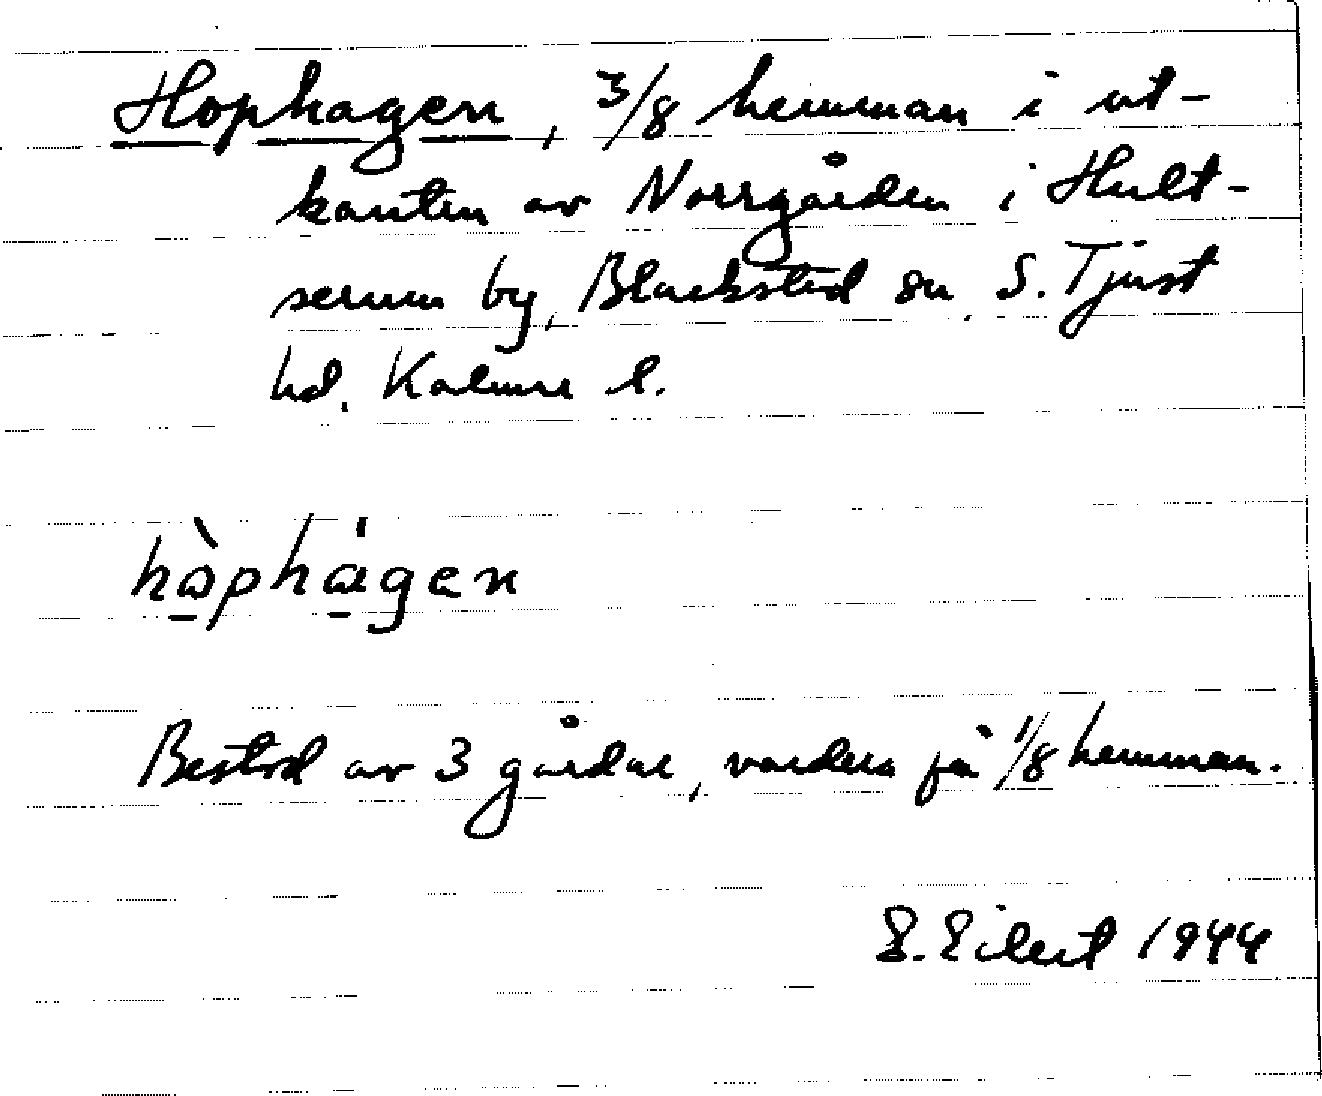 Hophagen, 3/8 hemman i ut-
kanten av Norrgården i Hult-
serum by, Blackstad sn, S. Tjust
hd. Kalmar l.
hòphágen
Bestod av 3 gårdar, vardera på 1/8 hemman.
E. Eilert 1944